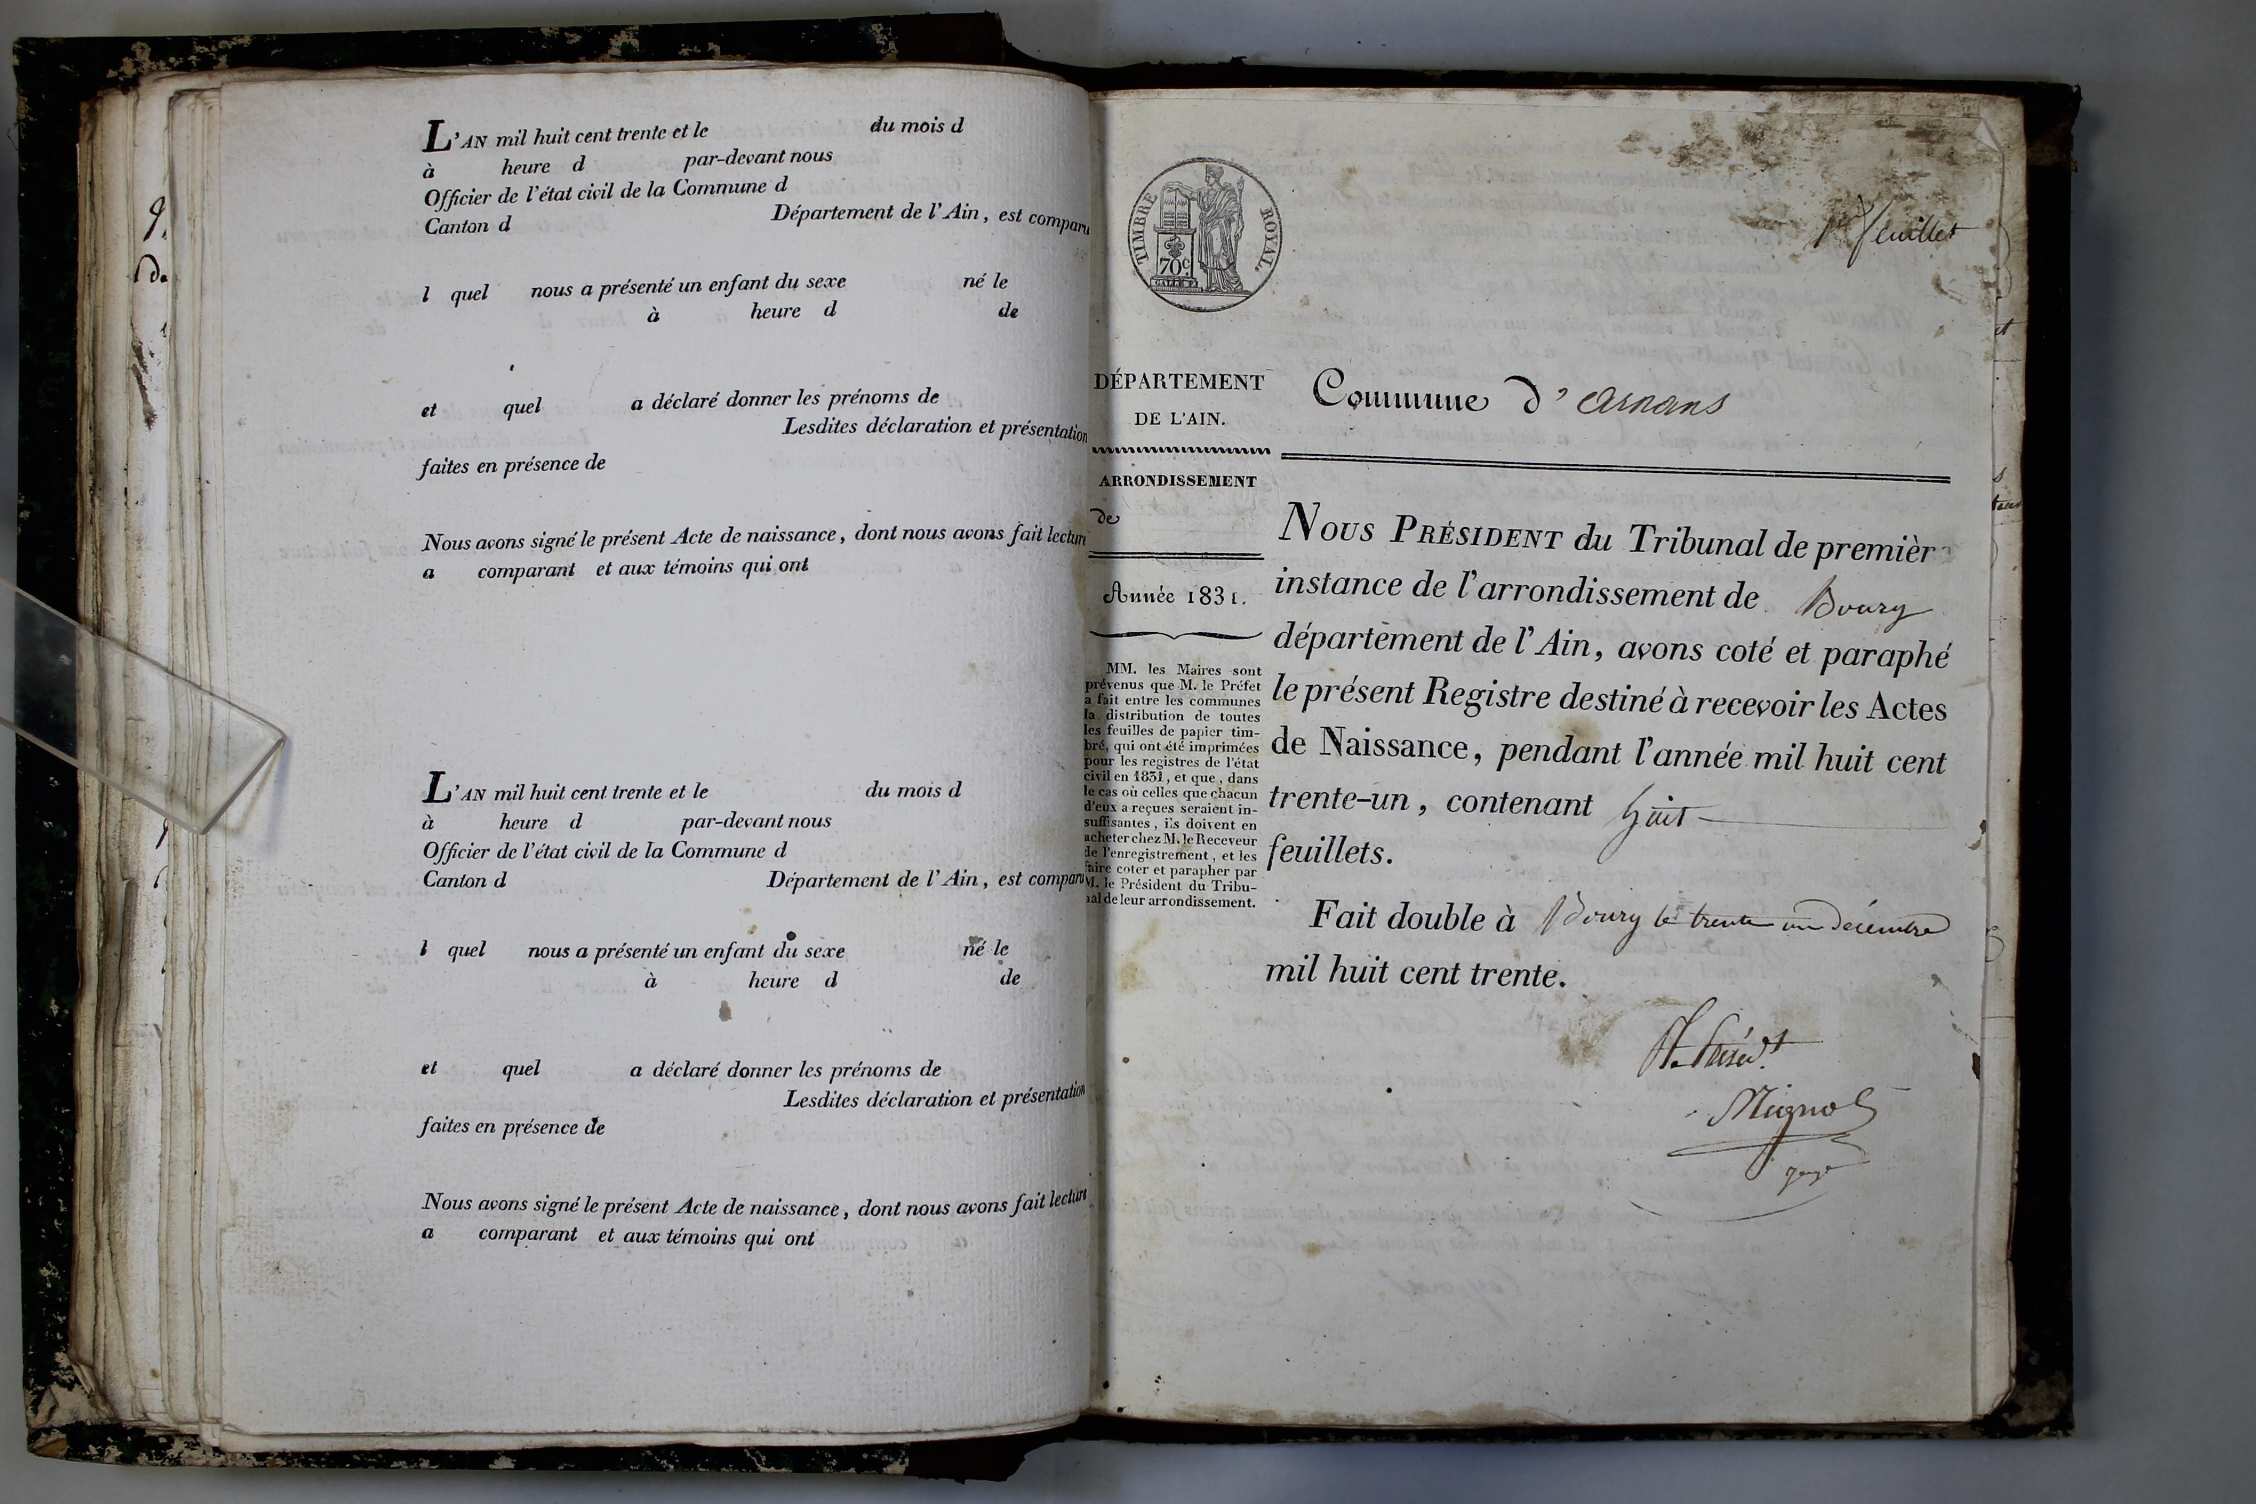 L'AN mil huit cent trente et le du mois d
à heure d par-devant nous
Officier de l'état civil de la Commune d
Canton d Département de l'Ain, est comparu
l quel nous a présenté un enfant du sexe né le
à heure d de
et quel a déclaré donner les prénoms de
Lesdites déclaration et présentation
faites en présence de
Nous avons signé le présent Acte de naissance, dont nous avons fait lecture
a comparant et aux témoins qui ont
L'AN mil huit cent trente et le du mois d
à heure d par-devant nous
Officier de l'état civil de la Commune d
Canton d Département de l'Ain, est comparu
l quel nous a présenté un enfant du sexe né le
à heure d de
et quel a déclaré donner les prénoms de
Lesdites déclaration et présentation
faites en présence de
Nous avons signé le présent Acte de naissance, dont nous avons fait lecture
a comparant et aux témoins qui ont
TIMBRE ROYAL.
70c
1er feuillet
DÉPARTEMENT
DE L'AIN.
ARRONDISSEMENT
de
Année 1831.
MM. les Maires sont
prévenus que M. le Préfet
a fait entre les communes
la distribution de toutes
les feuilles de papier tim-
bré, qui ont été imprimées
pour les registres de l'état
civil en 1831, et que, dans
le cas où celles que chacun
d'eux a reçues seraient in-
suffisantes, ils doivent en
acheter chez M. le Receveur
de l'enregistrement, et les
faire coter et parapher par
M. le Président du Tribu-
nal de leur arrondissement.
Commune d'arnans
NOUS PRÉSIDENT du Tribunal de premièr
instance de l'arrondissement de Bourg
département de l'Ain, avons coté et paraphé
le présent Registre destiné à recevoir les Actes
de Naissance, pendant l'année mil huit cent
trente-un, contenant huit
feuillets.
Fait double à Bourg le trente un décembre
mil huit cent trente.
Mignot
juge